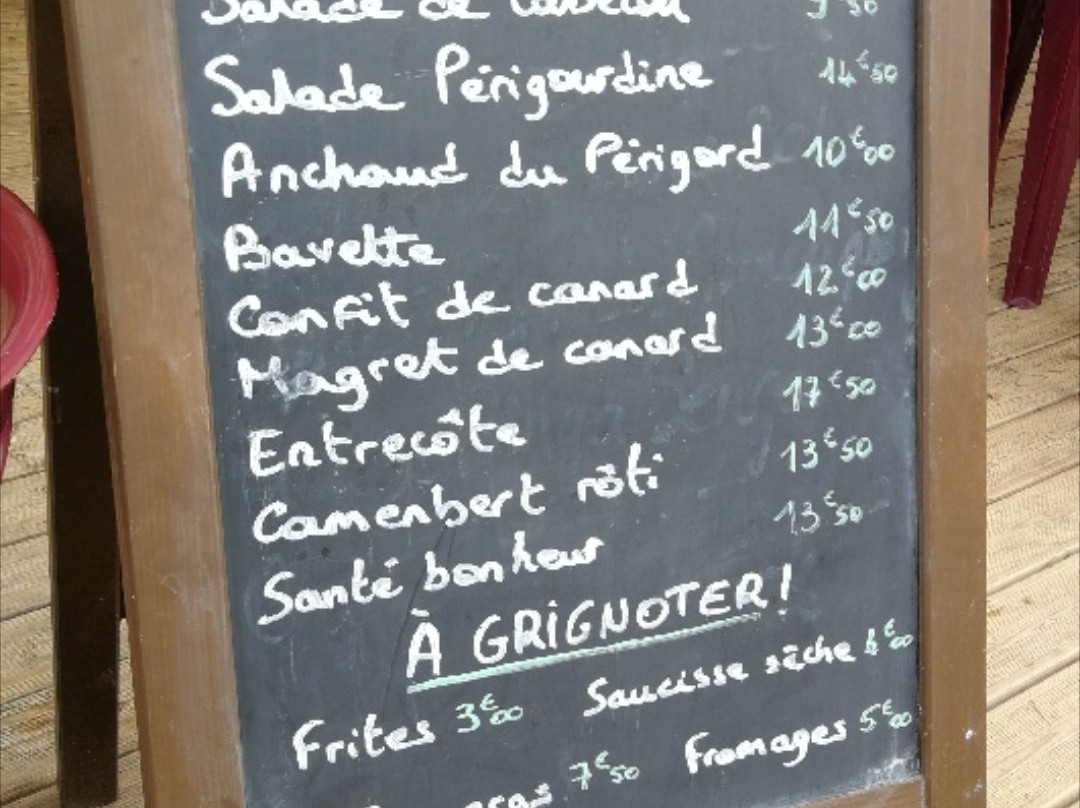 Salade de 9€50
Salade Périgourdine 14€50
Anchaud du Périgord 10€00
Bavette 11€50
Confit de canard 12€00
Magret de canard 13€00
Entrecôte 17€50
Camenbert rôti 13€50
Santé bonheur 13€50
À GRIGNOTER!
Frites 3€00 Saucisse sèche 4€00
7€50 Fromages 5€00